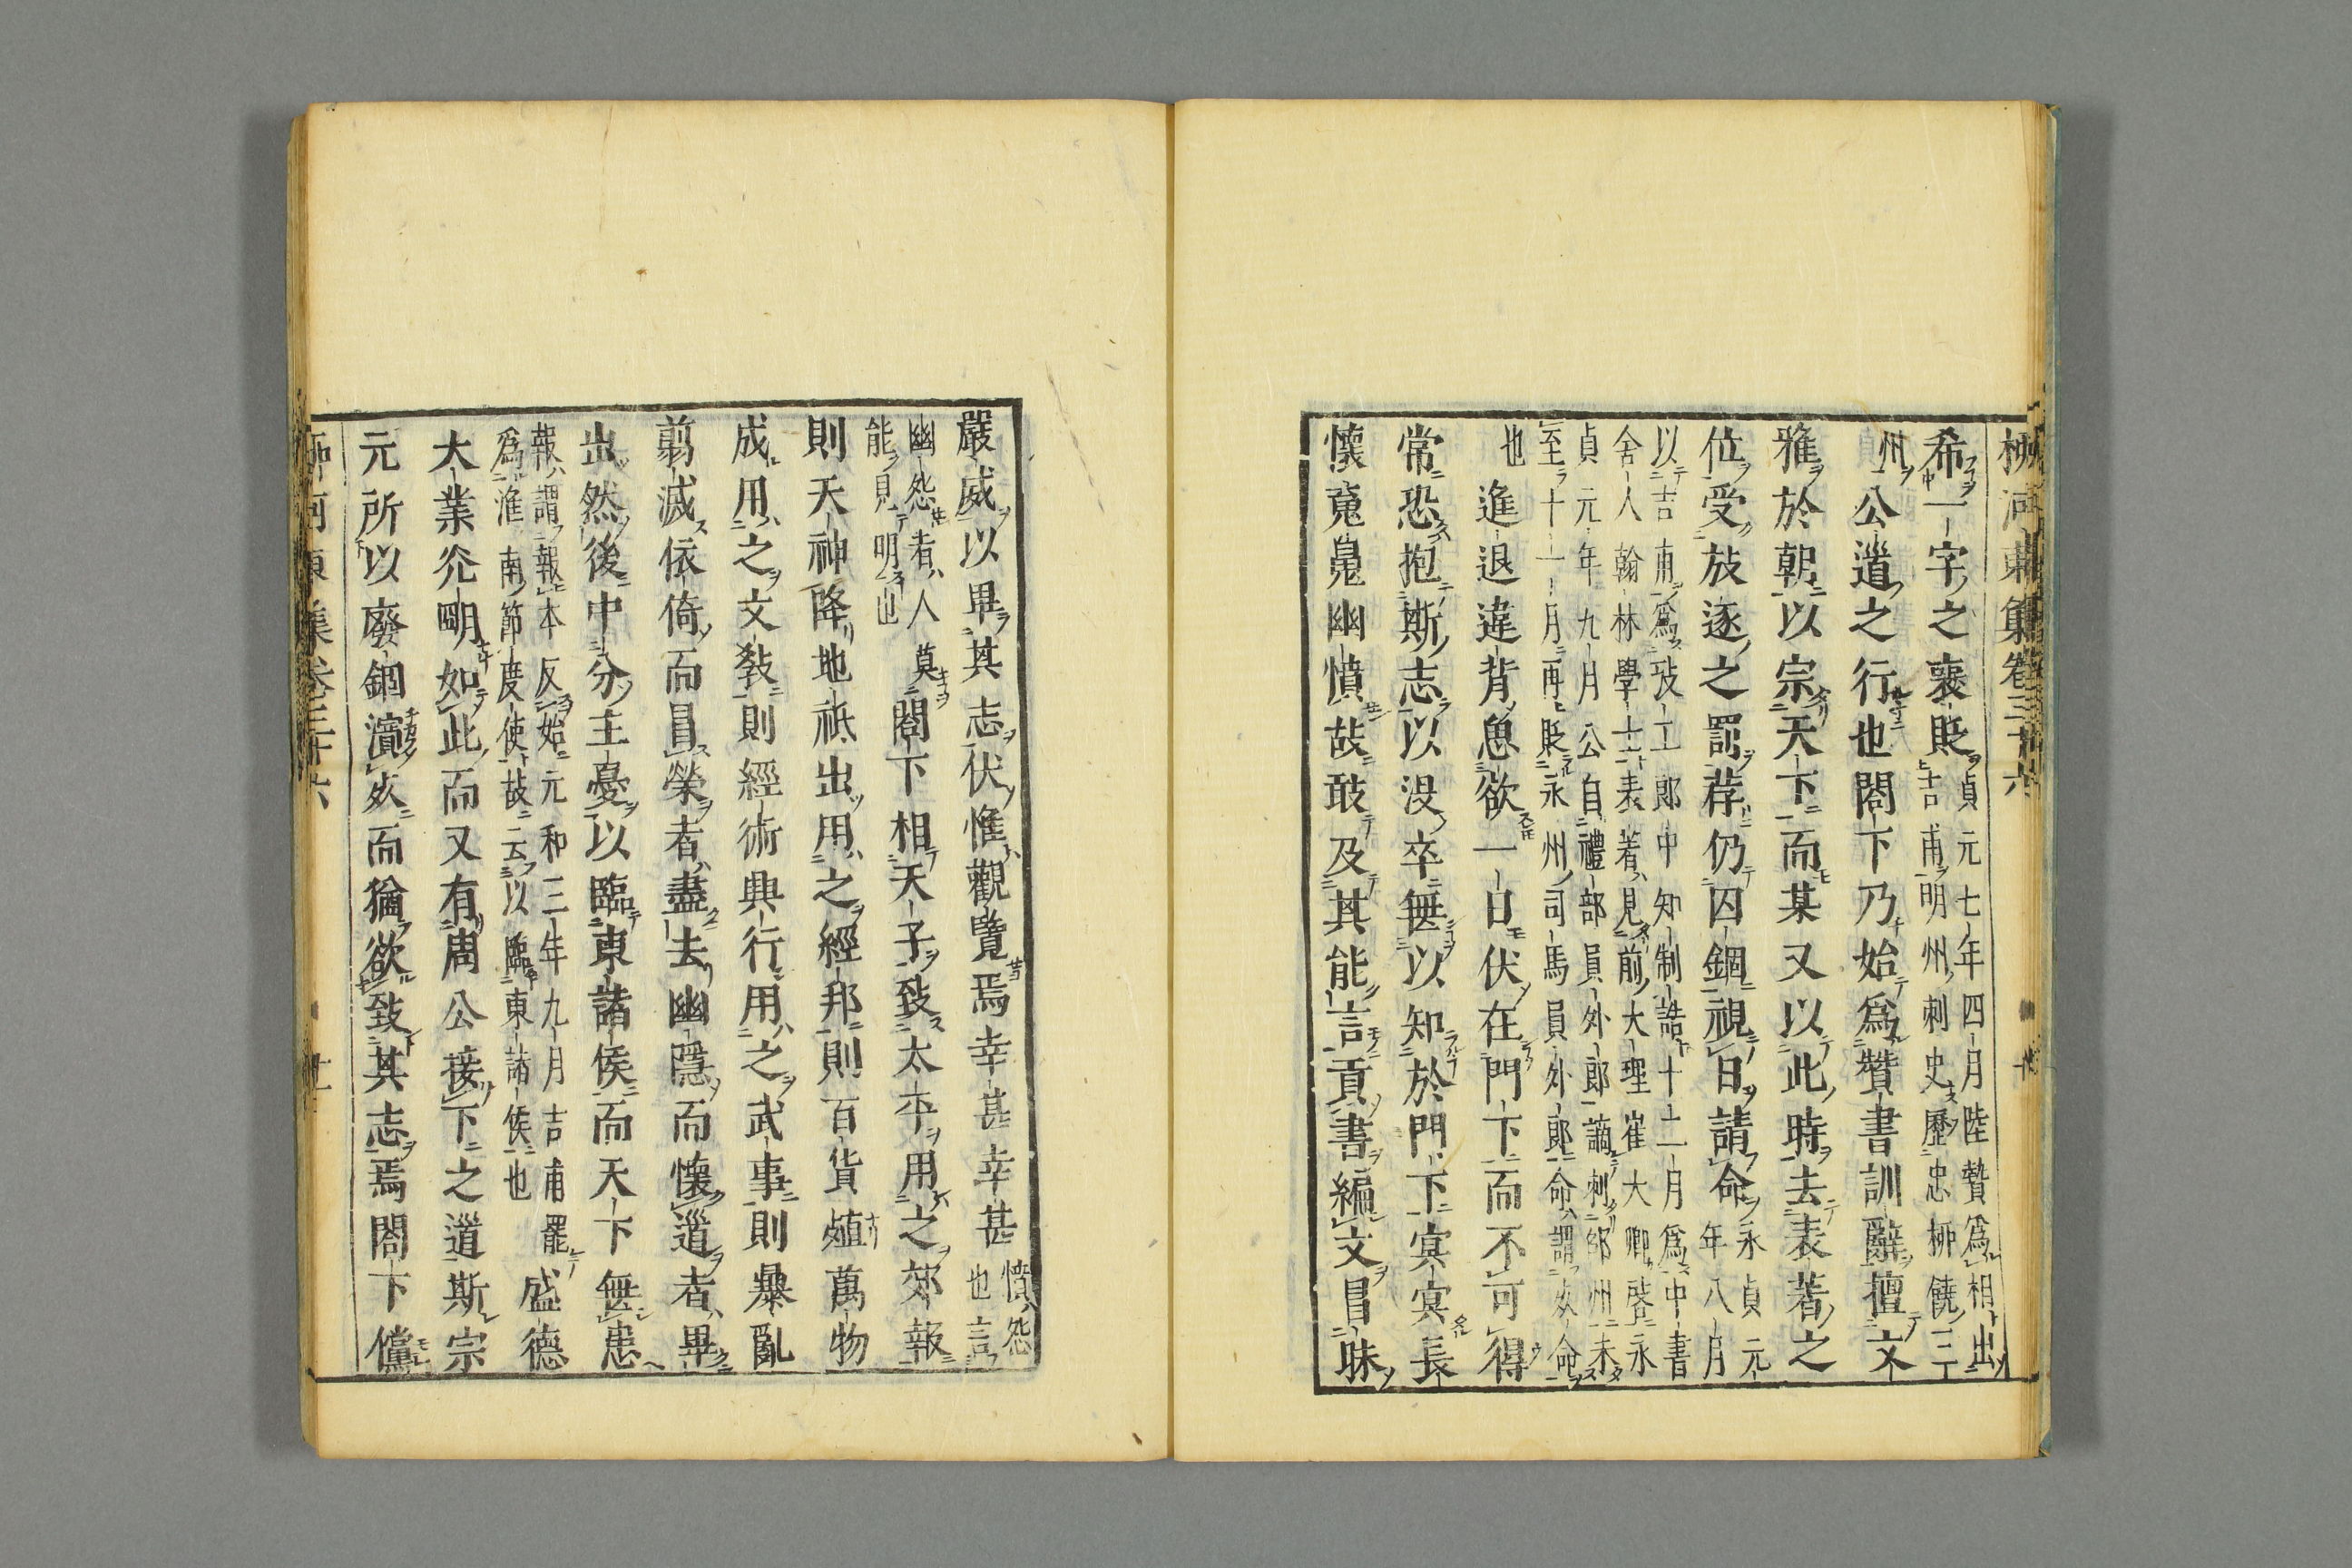 柳河東集卷三十六 十
希一字之襃貶
貞元七年四月陸贄爲相出
吉甫明州刺史歷忠郴饒三
州
公道之行也閤下乃始爲贊書訓辭擅文
雅於朝以宗天下而某又以此時去表著之
位受放逐之罰荐仍囚錮視日請命
永貞元
年八月
以吉甫爲攷工郎中知制誥十二月爲中書
舍人翰林學士表著見前大理崔大卿啓永
貞元年九月公自禮部員外郎謫刺邵州未
至十一月再貶永州司馬員外郎命謂竢命
也
進退違背思欲一日伏在門下而不可得
常恐抱斯志以没卒無以知於門下冥冥長
懷䰟㒵幽憤故敢及其能言貢書編文冒昧
嚴威以畢其志伏惟觀覽焉幸甚幸甚
憤怨
也言
幽怨者人莫
能見明也
閤下相天子致太平用之郊報
則天神降地祇出用之經邦則百貨殖萬物
成用之文敎則經術興行用之武事則暴亂
翦滅依倚而冒榮者盡去幽隱而懷道者畢
出然後中分主憂以臨東諸侯而天下無患
報謂報本反始元和三年九月吉甫罷
爲淮南節度使故云以臨東諸侯也
盛德
大業光明如此而又有周公接下之道斯宗
元所以廢錮濱死而猶欲致其志焉閤下儻
柳河東集卷三十六 十一